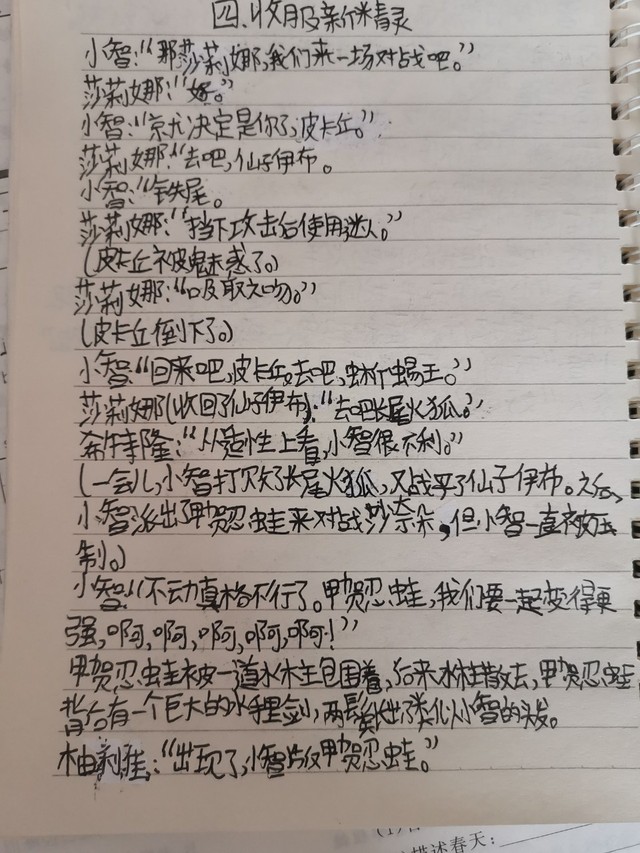 四、收服新精灵
小智:“那莎莉娜,我们来一场对战吧。”
莎莉娜:“好。”
小智:“就决定是你了,皮卡丘。”
莎莉娜:“去吧,仙子伊布。
小智:“铁尾。
莎莉娜:“挡下攻击后使用迷人。”
(皮卡丘被魅惑了。)
莎莉娜:“吸取之吻。”
(皮卡丘倒下了。)
小智:“回来吧,皮卡丘,去吧,蜥蜴王。”
莎莉娜(收回了仙子伊布):“去吧长尾火狐。”
希特隆:“从适性上看,小智很不利。”
(一会儿,小智打败了长尾火狐,又战平了仙子伊布。之后,
小智派出了甲贺忍蛙来对战沙奈朵,但小智一直被压
制。)
小智:“不动真格不行了。甲贺忍蛙,我们要一起变得更
强,啊,啊,啊,啊,啊!”
甲贺忍蛙被一道水柱包围着,后来水柱散去,甲贺忍蛙
背后有一个巨大的水手里剑,两鬓出了类似小智的头发。
柚利雅:“出现了,小智版甲贺忍蛙。”
描述春天: